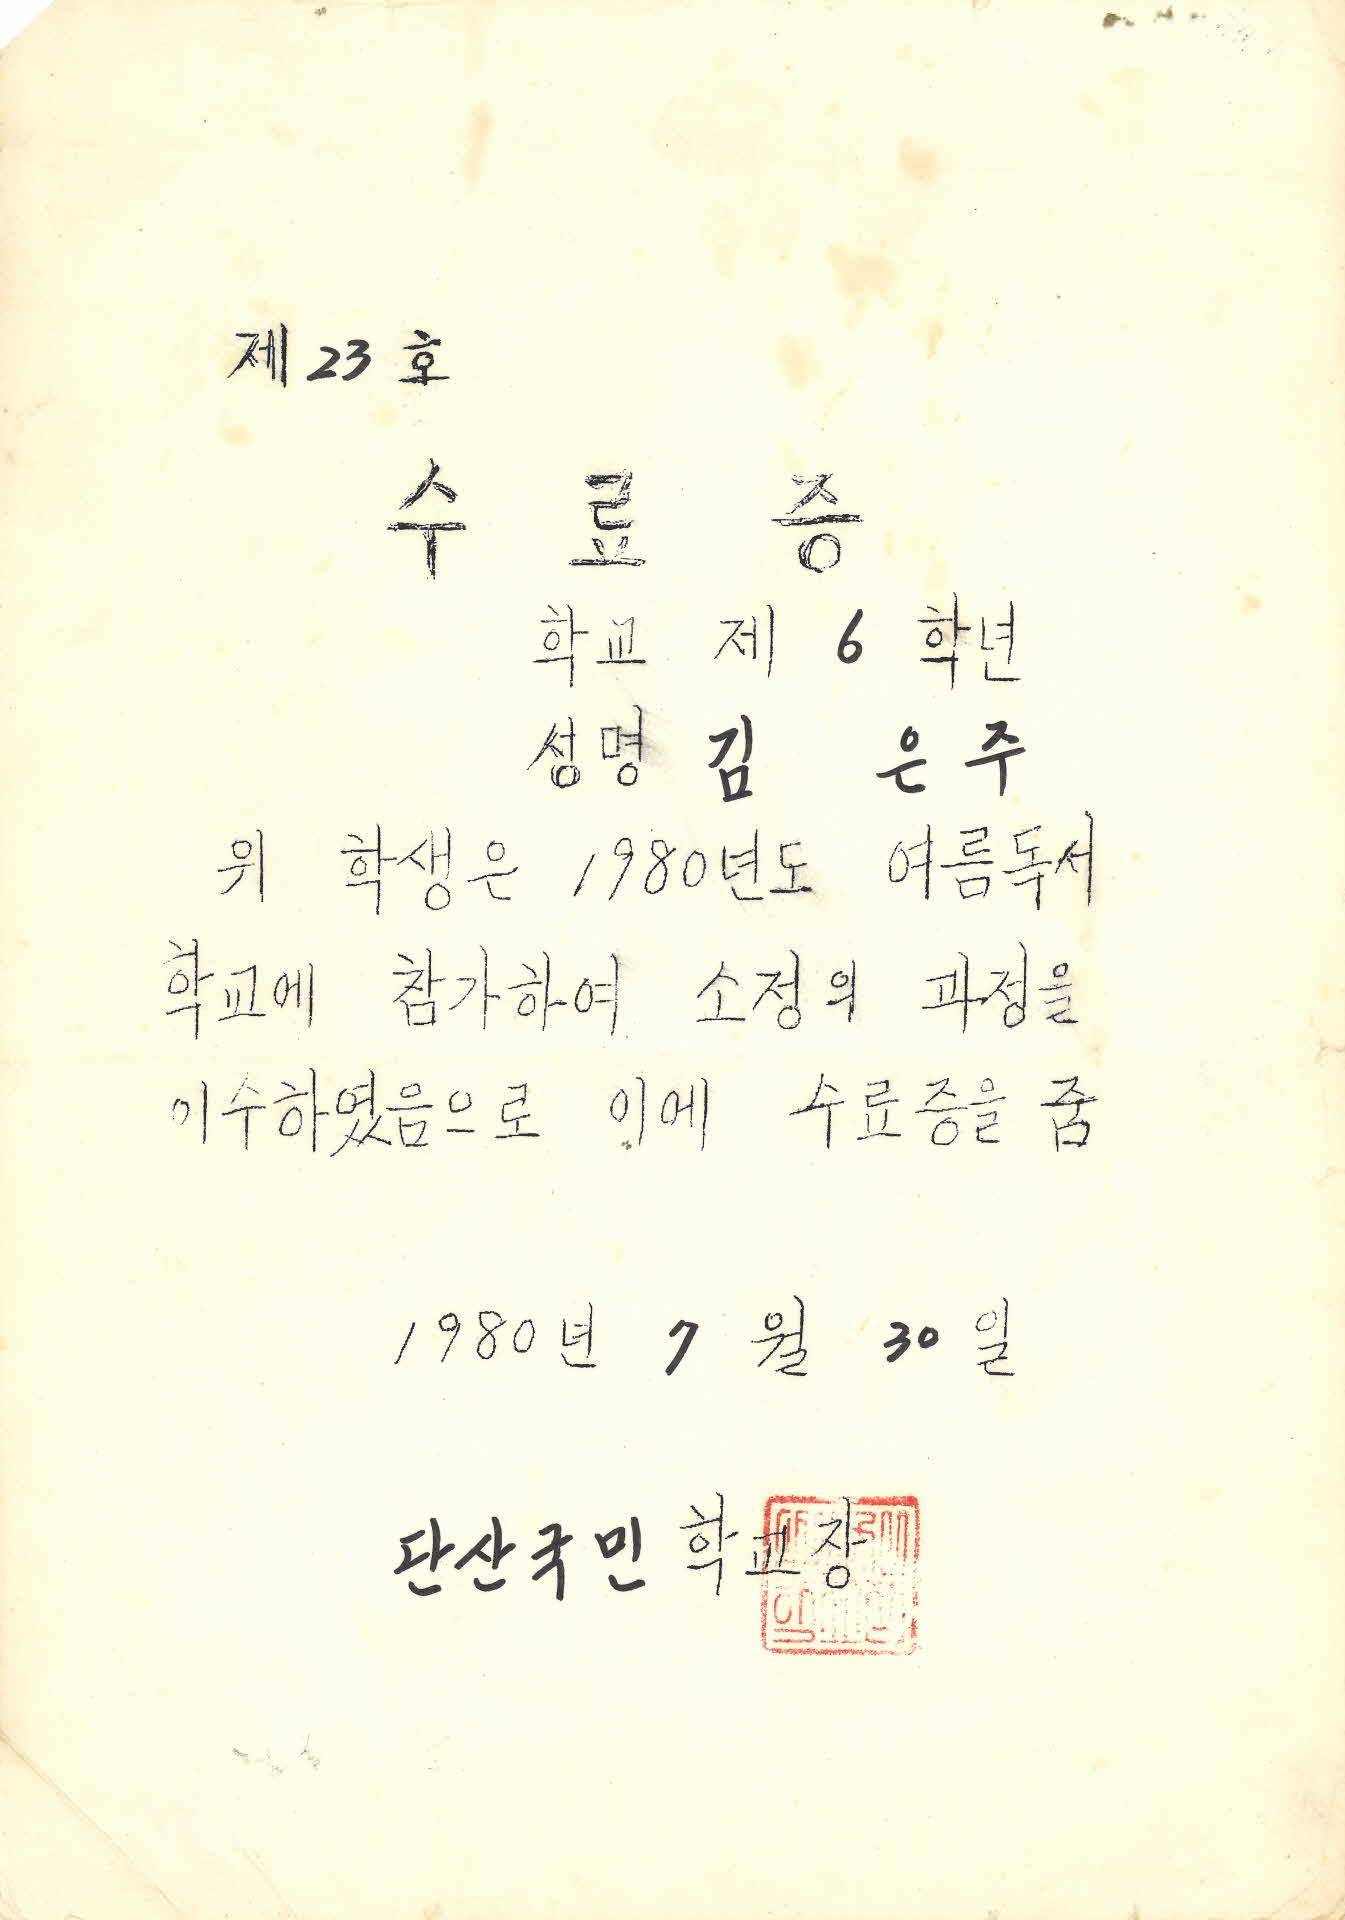 제 23 호
수 료 증
학교 제 6 학년
성명 김 은 주
위 학생은 1980년도 여름독서
학교에 참가하여 소정의 과정을
이수하였음으로 이에 수료증을 줌
1980년 7 월 30 일
단산국민 학교장